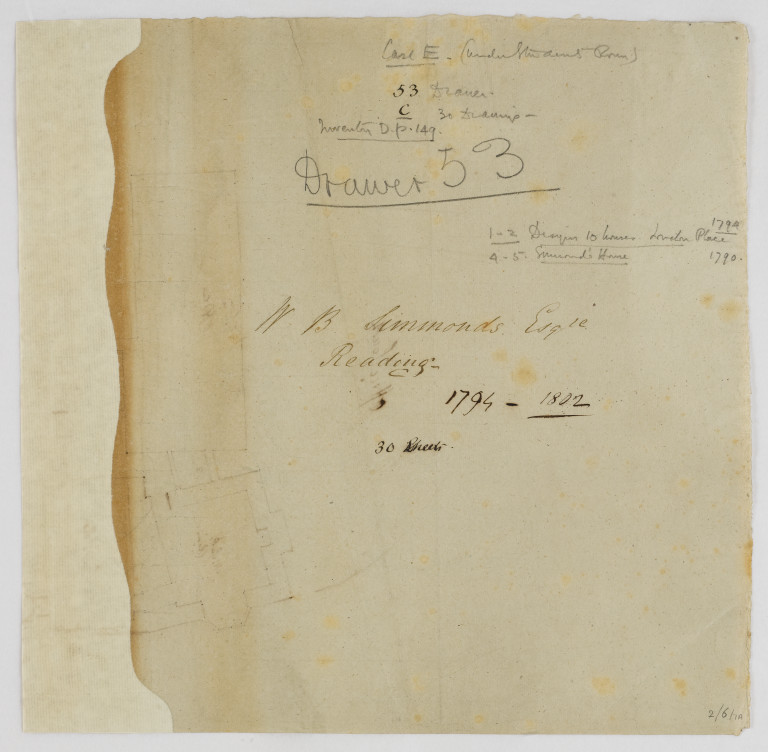 Case E. (under Students Room)
53 Drawer.
C 30 Drawings -
Inventory D. p. 149.
Drawer 53
1794
1-2 Designs 10 houses. London Place
4-5. Simmond's House 1790.
W B Simmonds Esqre
Reading-
1794 - 1802
30 Sheets.
2/6/1A